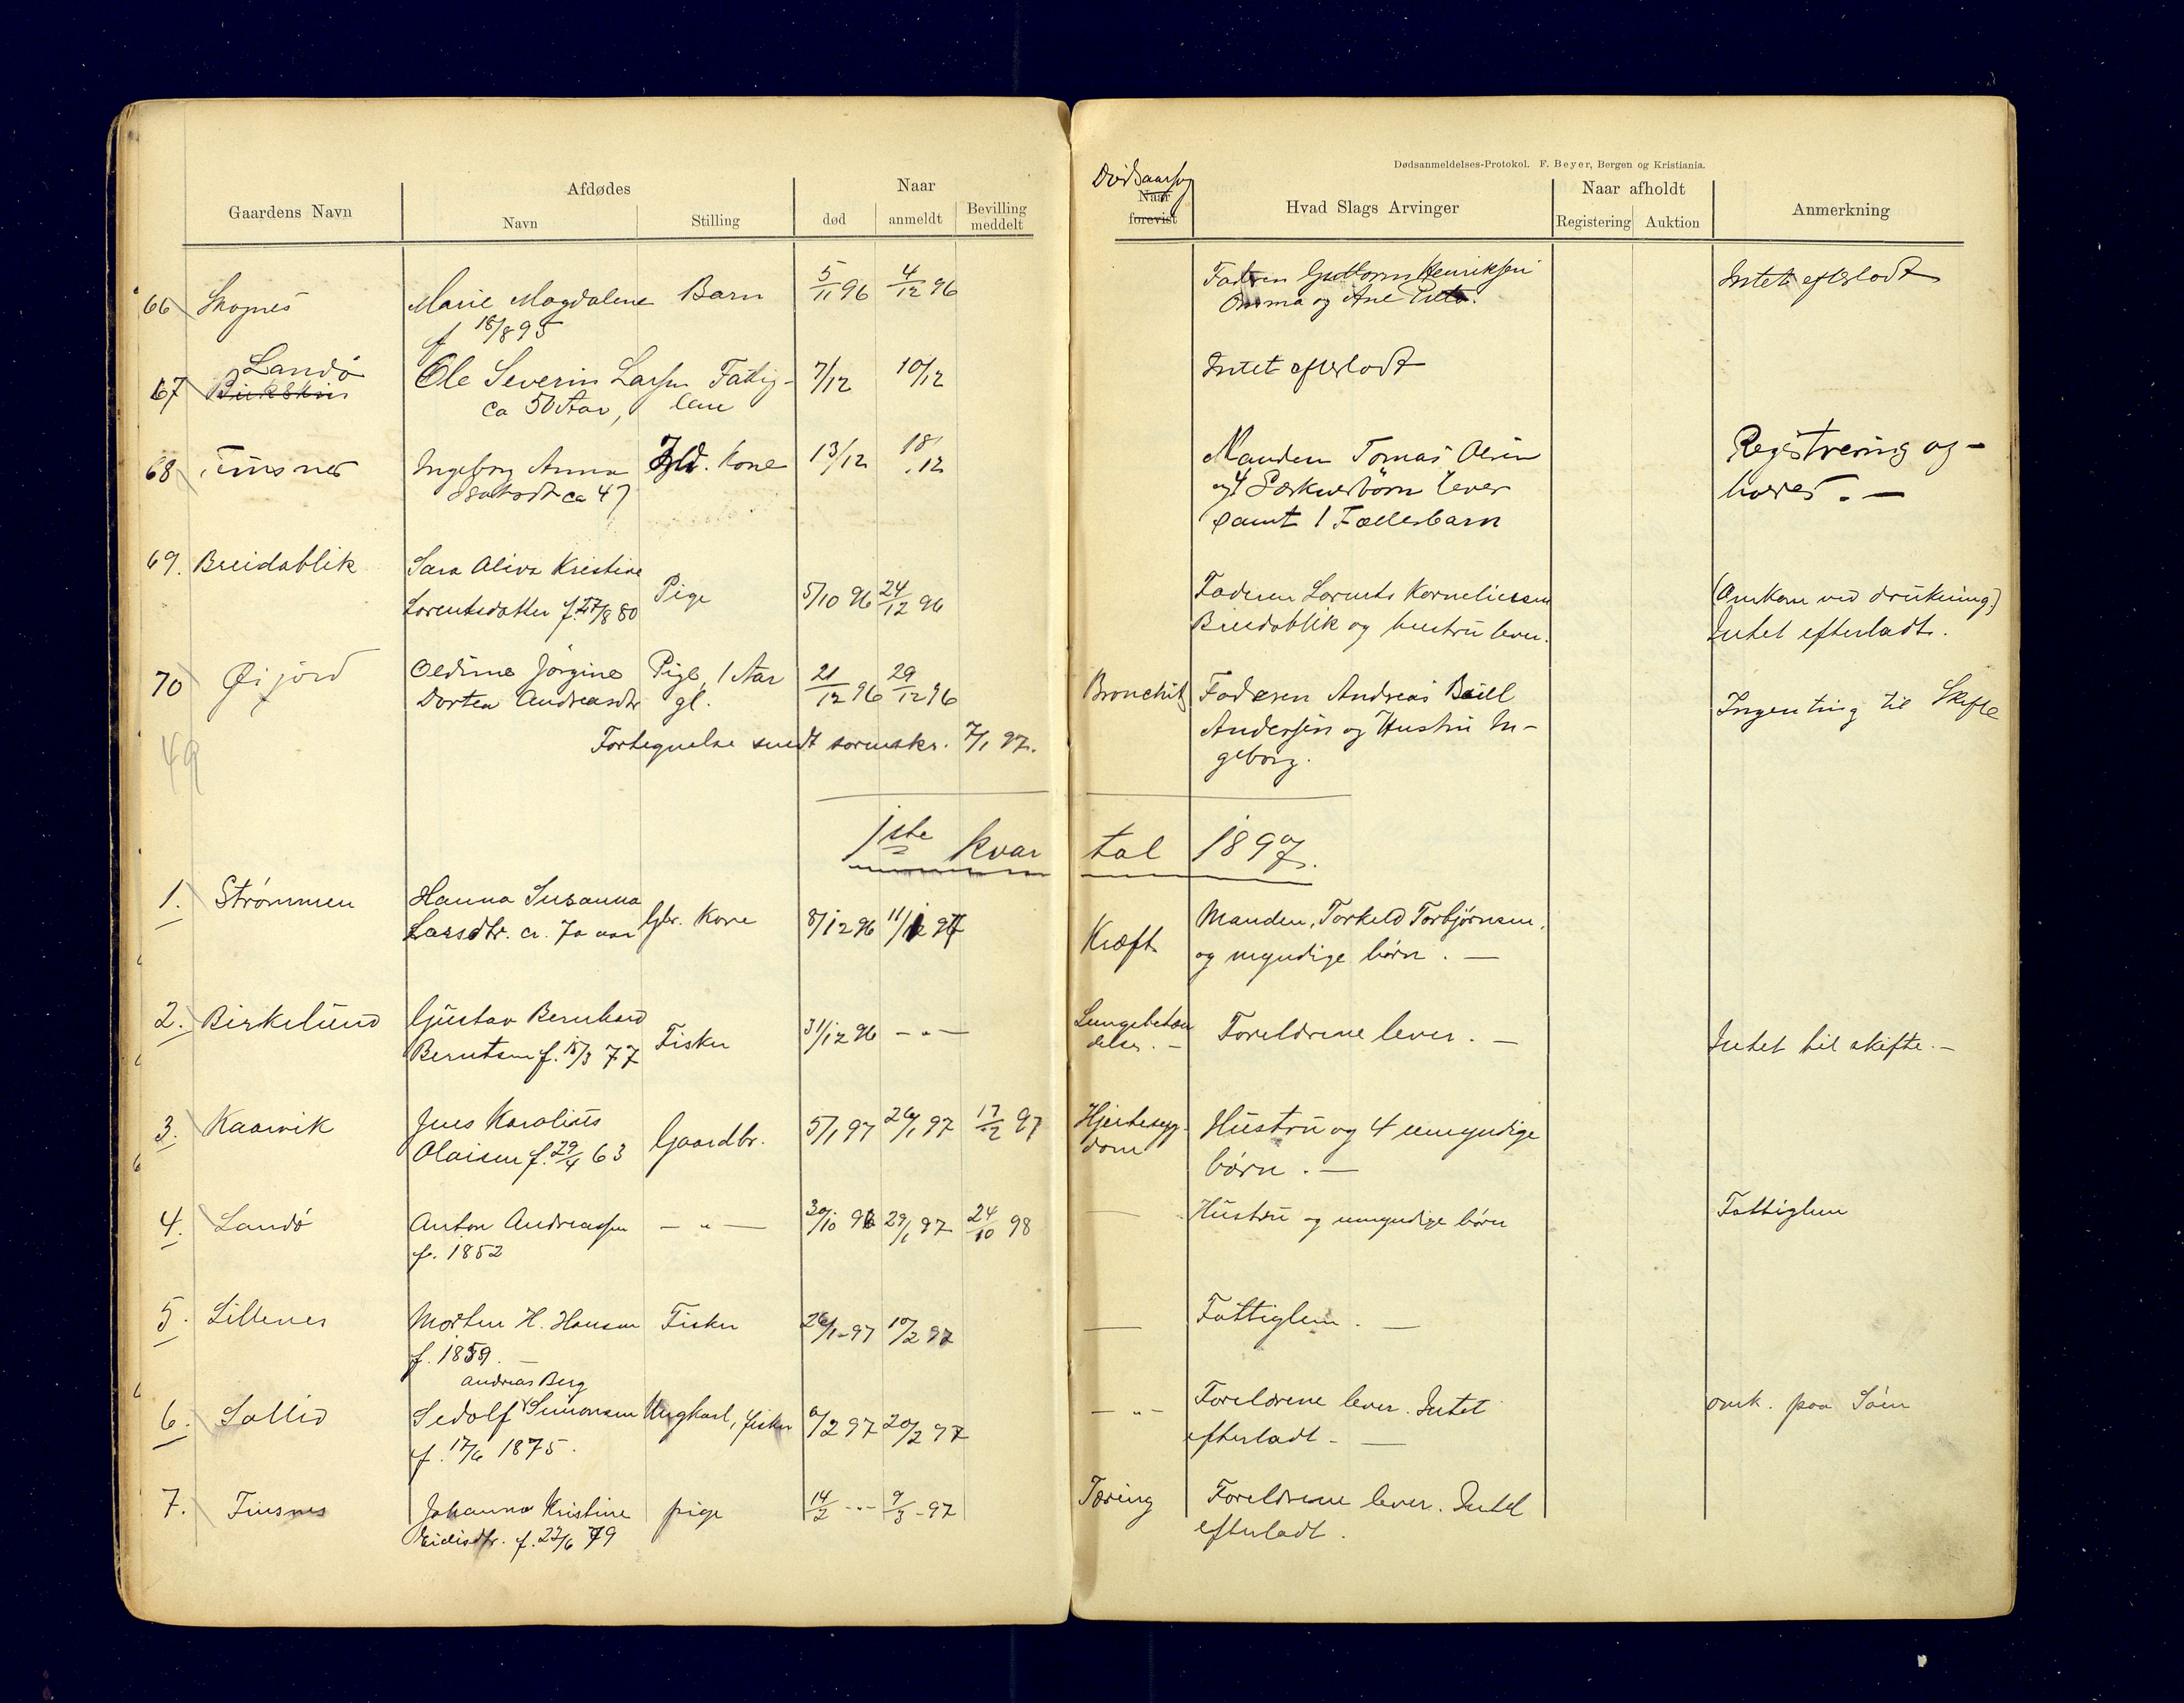 Dødsanmeldelses-Protokol. F. Beyer, Bergen og Kristiania.
Gaardens Navn
Afdødes
Navn
Stilling
Naar
død
anmeldt
Bevilling meddelt
Dødsaarsag
Naar forevist
Hvad Slags Arvinger
Naar afholdt
Registering
Auktion
Anmerkning
66 Skognes Marie Magdalene Barn 5/11 96 4/12 96 Faderen Guttorm Henriksen Intet efterladt
f 18/8 95 og Ane
Landö
67 Ole Severin Larsen Fattig- 7/12 10/12 Intet efterladt
ca 50 Aar, lem
68 Finsnes Ingeborg Anna Kone 13/12 18/12 Manden Tomas Olsen Registrering og-
ca 47 og 4 Særkuldbörn lever
samt 1 Fællesbarn
69. Breidablik Sara Oliva Kristine Pige 5/10 96 24/12 96 Faderen Lorents Korneliussen (Omkom ved drukning)
Lorentsdatter f. 27/8 80 Breidablik og hustru lever. Intet efterladt.
70 Øijord Oldine Jørgine Pige, 1 Aar 21/12 96 29/12 96 Bronchit Faderen Andreas Ingenting til Skifte
Dortea Andreasdtr gl. Andersen og Hustru In-
Fortegnelse sendt sorenskr. 7/1 97. geborg.
49
1ste kvartal 1897.
1. Strømmen Hanna Susanna Gbr. Kone 8/12 96 Kræft Manden, Torkeld Torbjørnsen,
Larsdtr. ca. 70 aar og myndige börn. —
2. Birkelund Gustav Bernhard Fisker 31/12 96 — „ — Lungebetæn Foreldrene lever. — Intet til skifte. —
Berntsen f. 15/3 77 delse. —
3. Kaarvik Jens Karolius Gaardbr. 5/1 97 26/1 97 17/2 97 Hjertesyg- Hustru og 4 umyndige
Olaisen f. 29/4 63 dom börn. —
4. Landö Anton Andreassen — „ — 30/10 96 29/1 97 24/10 98 — Hustru og umyndige börn Fattiglem
f. 1852
5. Lillenes Morten H. Hansen Fisker 26/1-97 10/2 97 — Fattiglem. —
f. 1859. —
Andreas Berg
6. Sollid Sedolf Simonsen Ungkarl, fisker 6/2 97 20/2 97 — „ — Foreldrene lever. Intet omk. paa Söen
f. 17/6 1875. efterladt. —
7. Finsnes Johanna Kristine pige 14/2 - „ - 9/3 - 97 Tæring Foreldrene lever. Intet
Eidisdtr. f. 22/6 79 efterladt.